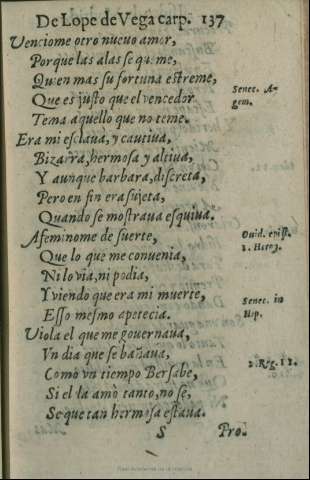 De Lope de Vega carp. 137
Venciome otro nueuo amor,
Porque las alas se queme,
Quien mas su fortuna estreme,
Que es justo que el vencedor
Senec. A-
gem.
Tema aquello que no teme.
Era mi esclaua, y cautiua,
Bizarra, hermosa y altiua,
Y aunque barbara, discreta,
Pero en fin era sujeta,
Quando se mostraua esquiua.
Afeminome de suerte,
Ouid. epist.
Que lo que me conuenia,
Ni lo via, ni podia,
Y viendo que era mi muerte,
Senec. in
Hip.
Esso mesmo apetecia.
Viola el que me gouernaua,
Vn dia que se bañaua,
2. Reg. 11.
Como vn tiempo Bersabe,
Si el la amò tanto, no sè,
Se que tan hermosa estaua.
S Pro-
Real Academia de la Historia